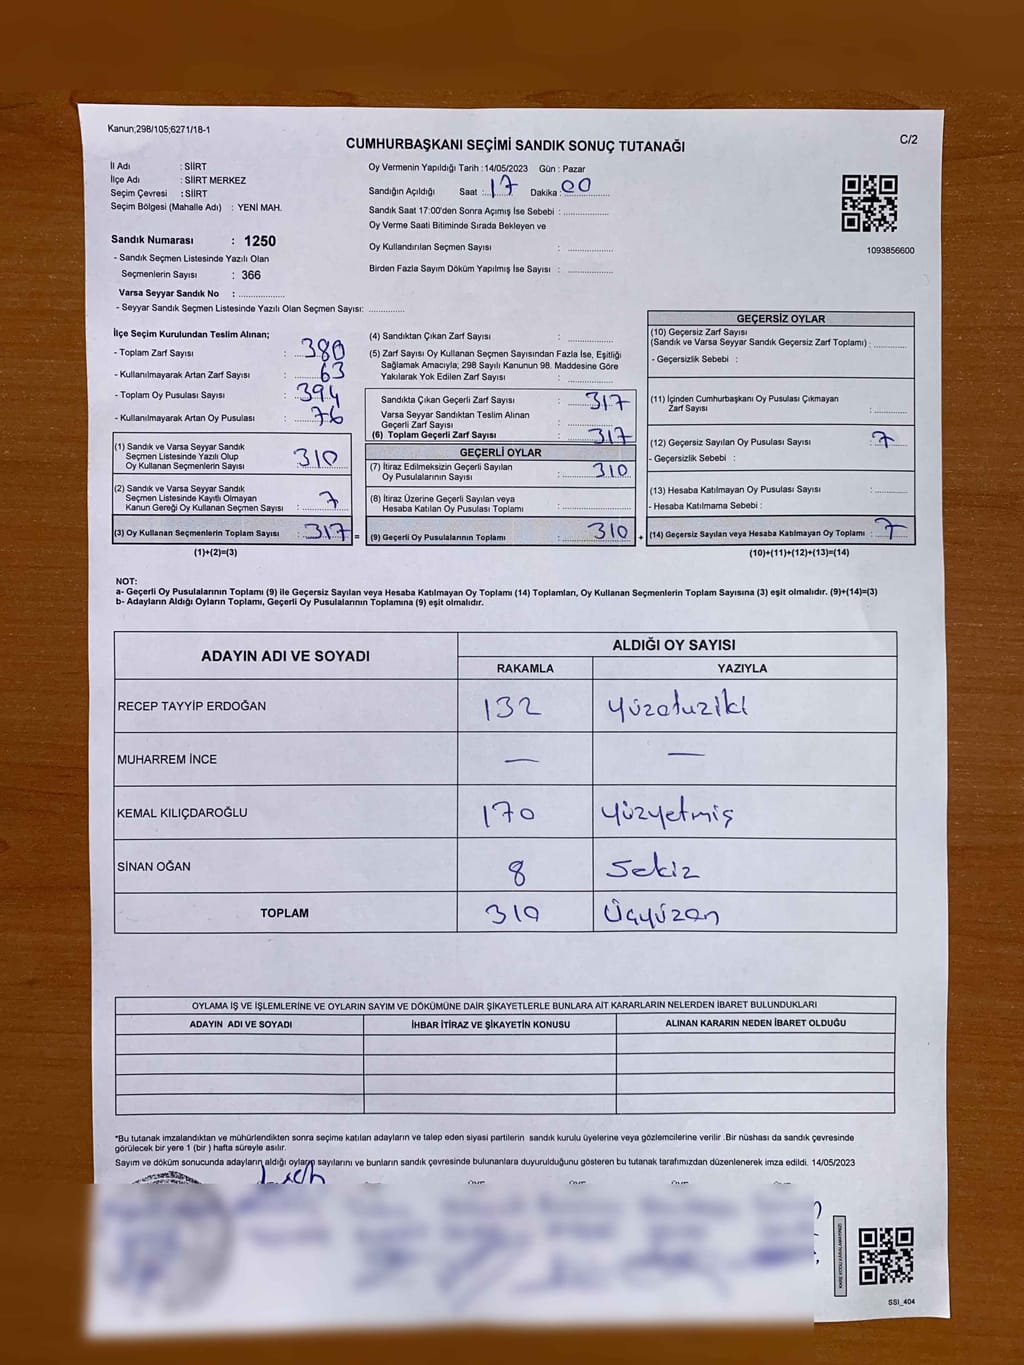 Kanun;298/105;6271/18-1
C/2
CUMHURBAŞKANI SEÇİMİ SANDIK SONUÇ TUTANAĞI
İl Adı : SİİRT
İlçe Adı : SİİRT MERKEZ
Seçim Çevresi : SİİRT
Seçim Bölgesi (Mahalle Adı) : YENİ MAH.
Sandık Numarası : 1250
- Sandık Seçmen Listesinde Yazılı Olan
Seçmenlerin Sayısı : 366
Varsa Seyyar Sandık No : ..............
- Seyyar Sandık Seçmen Listesinde Yazılı Olan Seçmen Sayısı: ..............
Oy Vermenin Yapıldığı Tarih : 14/05/2023 Gün : Pazar
Sandığın Açıldığı Saat :17 Dakika :00
Sandık Saat 17:00'den Sonra Açımış İse Sebebi : ..............
Oy Verme Saati Bitiminde Sırada Bekleyen ve
Oy Kullandırılan Seçmen Sayısı : ..............
Birden Fazla Sayım Döküm Yapılmış İse Sayısı : ..............
1093856600
İlçe Seçim Kurulundan Teslim Alınan;
- Toplam Zarf Sayısı : 380
- Kullanılmayarak Artan Zarf Sayısı : 63
- Toplam Oy Pusulası Sayısı : 394
- Kullanılmayarak Artan Oy Pusulası : 76
(1) Sandık ve Varsa Seyyar Sandık
Seçmen Listesinde Yazılı Olup
Oy Kullanan Seçmenlerin Sayısı : 310
(2) Sandık ve Varsa Seyyar Sandık
Seçmen Listesinde Kayıtlı Olmayan
Kanun Gereği Oy Kullanan Seçmen Sayısı : 7
(3) Oy Kullanan Seçmenlerin Toplam Sayısı : 317 =
(1)+(2)=(3)
(4) Sandıktan Çıkan Zarf Sayısı : ..............
(5) Zarf Sayısı Oy Kullanan Seçmen Sayısından Fazla İse, Eşitliği
Sağlamak Amacıyla; 298 Sayılı Kanunun 98. Maddesine Göre
Yakılarak Yok Edilen Zarf Sayısı : ..............
Sandıkta Çıkan Geçerli Zarf Sayısı : 317
Varsa Seyyar Sandıktan Teslim Alınan
Geçerli Zarf Sayısı : ..............
(6) Toplam Geçerli Zarf Sayısı : 317
GEÇERLİ OYLAR
(7) İtiraz Edilmeksizin Geçerli Sayılan
Oy Pusulalarının Sayısı : 310
(8) İtiraz Üzerine Geçerli Sayılan veya
Hesaba Katılan Oy Pusulası Toplamı : ..............
(9) Geçerli Oy Pusulalarının Toplamı : 310 +
GEÇERSİZ OYLAR
(10) Geçersiz Zarf Sayısı
(Sandık ve Varsa Seyyar Sandık Geçersiz Zarf Toplamı) : ..............
- Geçersizlik Sebebi :
(11) İçinden Cumhurbaşkanı Oy Pusulası Çıkmayan
Zarf Sayısı : ..............
(12) Geçersiz Sayılan Oy Pusulası Sayısı : 7
- Geçersizlik Sebebi :
(13) Hesaba Katılmayan Oy Pusulası Sayısı : ..............
- Hesaba Katılmama Sebebi :
(14) Geçersiz Sayılan veya Hesaba Katılmayan Oy Toplamı : 7
(10)+(11)+(12)+(13)=(14)
NOT:
a- Geçerli Oy Pusulalarının Toplamı (9) ile Geçersiz Sayılan veya Hesaba Katılmayan Oy Toplamı (14) Toplamları, Oy Kullanan Seçmenlerin Toplam Sayısına (3) eşit olmalıdır. (9)+(14)=(3)
b- Adayların Aldığı Oyların Toplamı, Geçerli Oy Pusulalarının Toplamına (9) eşit olmalıdır.
ADAYIN ADI VE SOYADI
ALDIĞI OY SAYISI
RAKAMLA YAZIYLA
RECEP TAYYİP ERDOĞAN 132 Yüzotuziki
MUHARREM İNCE — —
KEMAL KILIÇDAROĞLU 170 Yüzyetmiş
SİNAN OĞAN 8 Sekiz
TOPLAM 310 Üçyüzon
OYLAMA İŞ VE İŞLEMLERİNE VE OYLARIN SAYIM VE DÖKÜMÜNE DAİR ŞİKAYETLERLE BUNLARA AİT KARARLARIN NELERDEN İBARET BULUNDUKLARI
ADAYIN ADI VE SOYADI İHBAR İTİRAZ VE ŞİKAYETİN KONUSU ALINAN KARARIN NEDEN İBARET OLDUĞU
*Bu tutanak imzalandıktan ve mühürlendikten sonra seçime katılan adayların ve talep eden siyasi partilerin sandık kurulu üyelerine veya gözlemcilerine verilir .Bir nüshası da sandık çevresinde
görülecek bir yere 1 (bir ) hafta süreyle asılır.
Sayım ve döküm sonucunda adayların aldığı oyların sayılarını ve bunların sandık çevresinde bulunanlara duyurulduğunu gösteren bu tutanak tarafımızdan düzenlenerek imza edildi. 14/05/2023
SSI_404